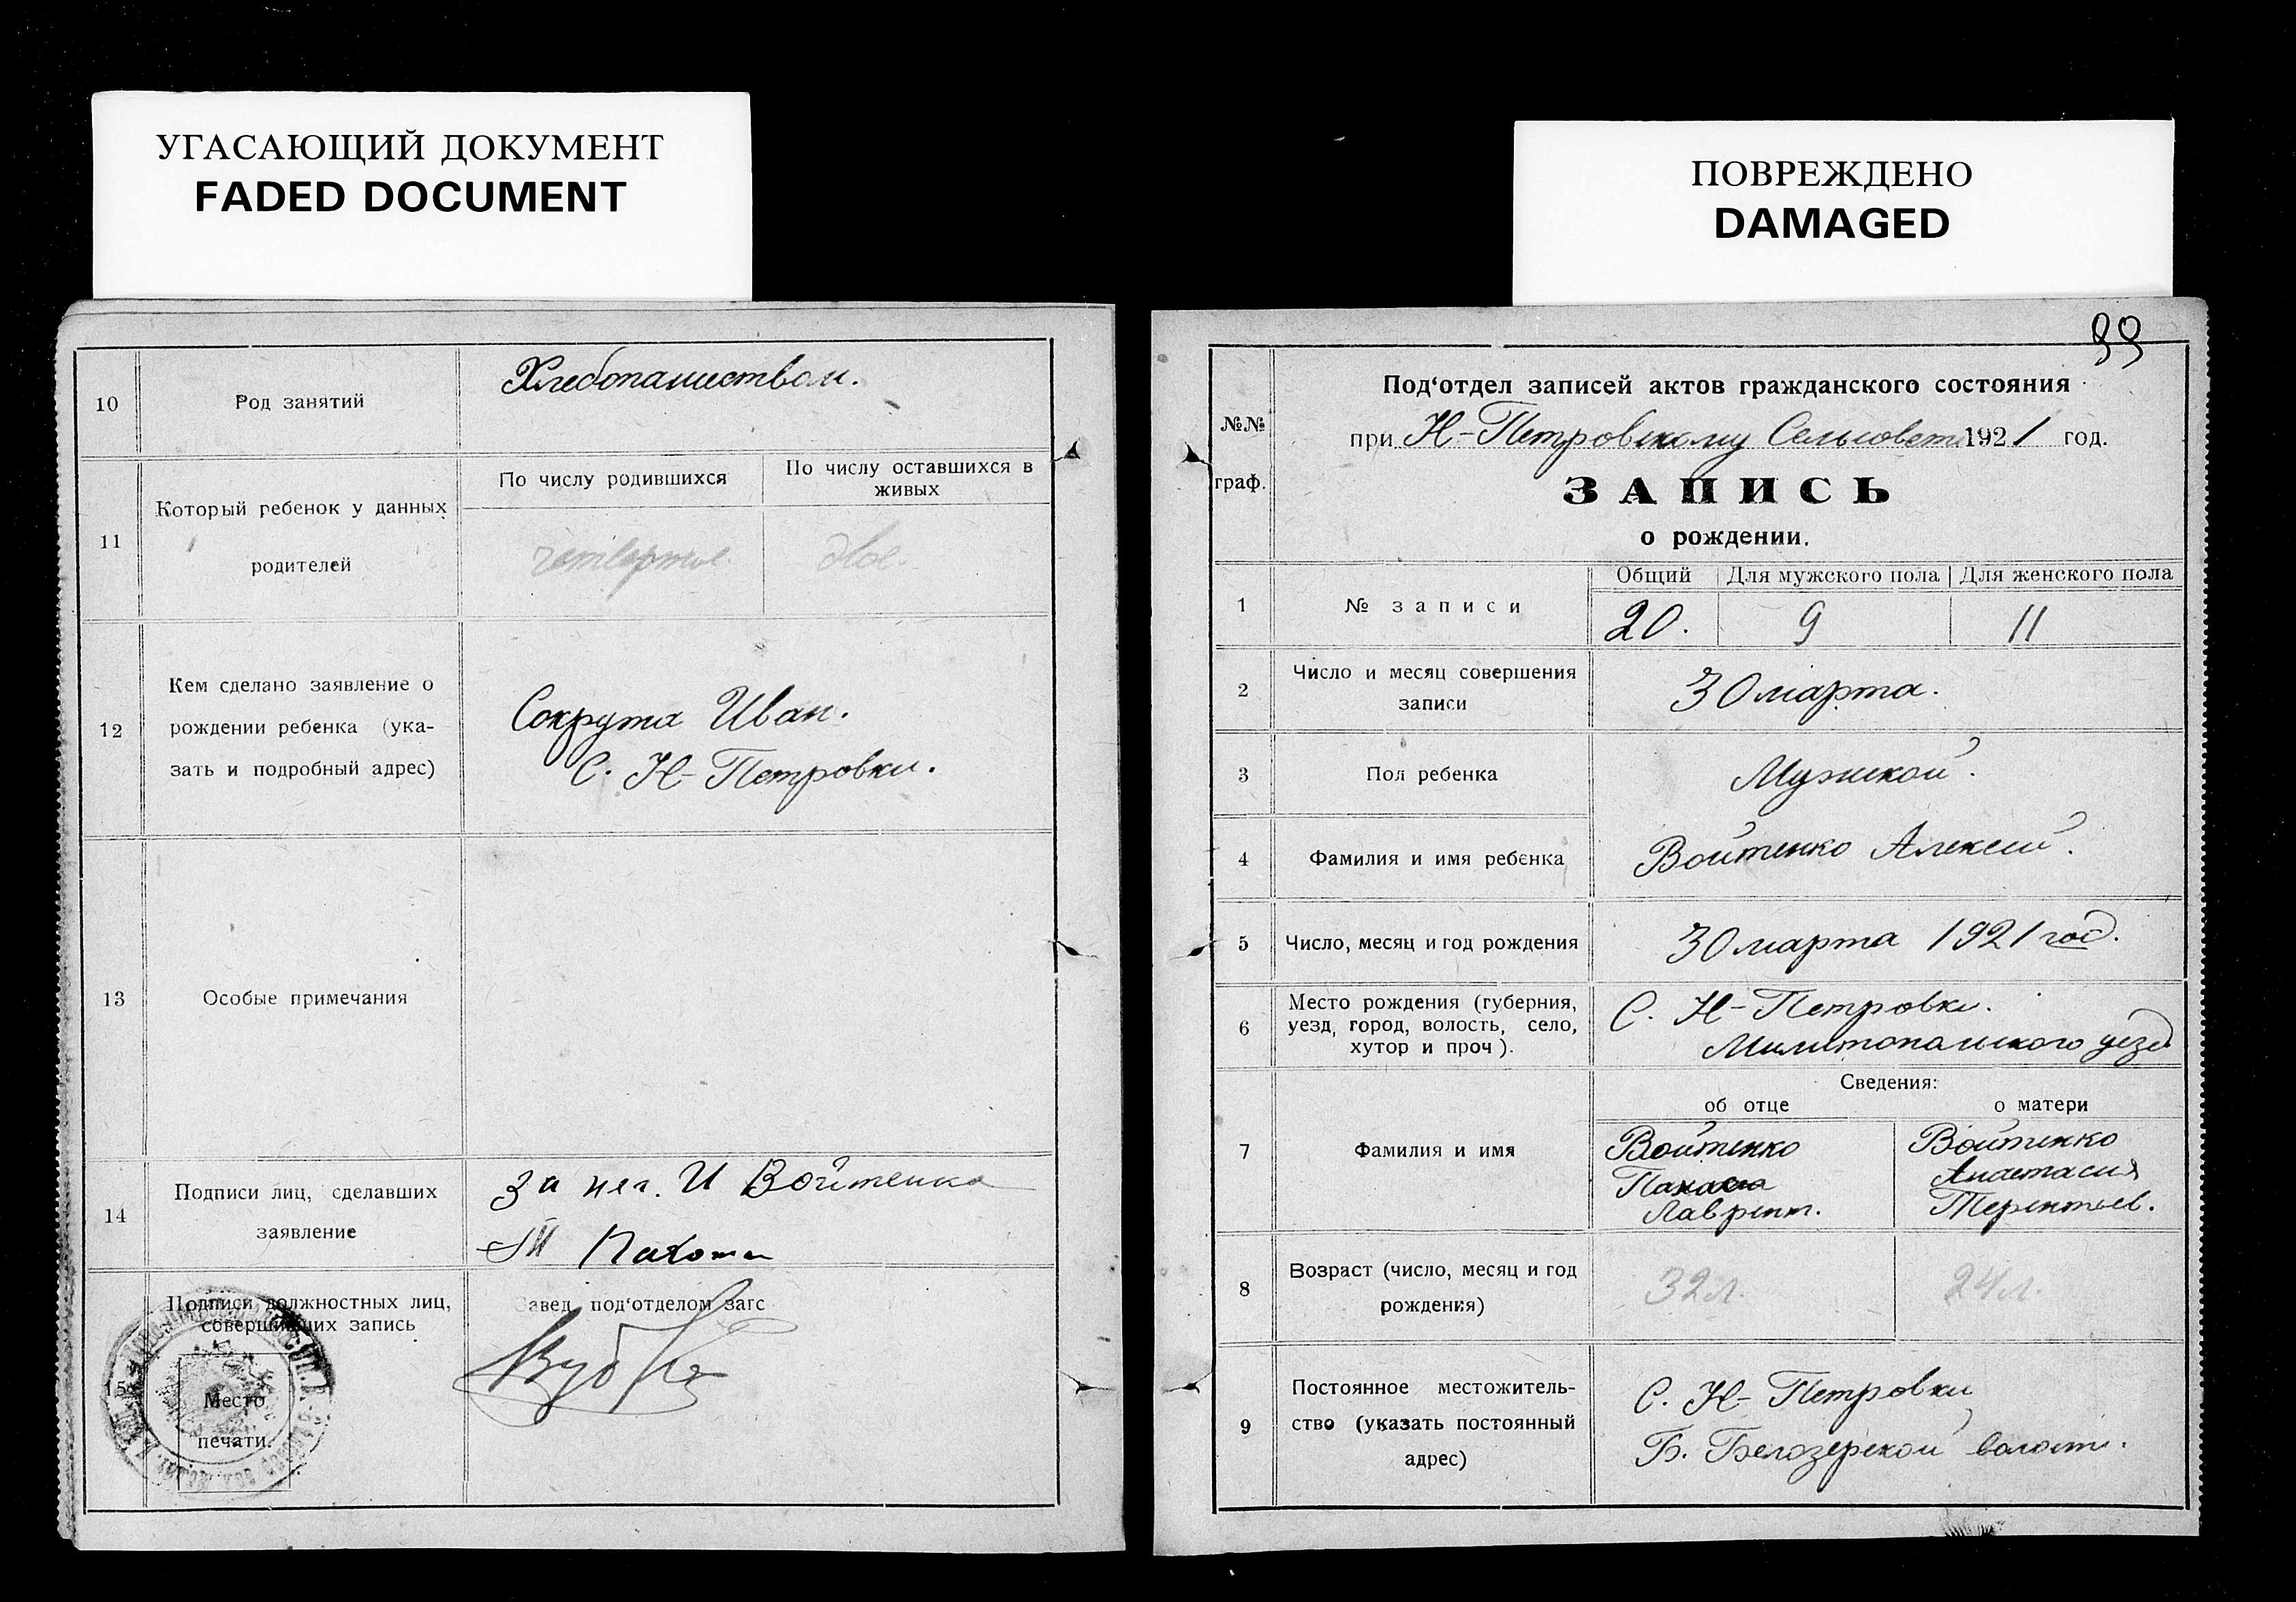 УГАСАЮЩИЙ ДОКУМЕНТ
FADED DOCUMENT
10
Род занятий
Хлебопашеством.
11
Который ребенок у данных
родителей
По числу родившихся
По числу оставшихся в
живых
четвертое.
двое.
12
Кем сделано заявление о
рождении ребенка (ука-
зать и подробный адрес)
Сокрута Иван.
С. Н-Петровки.
13
Особые примечания
14
Подписи лиц, сделавших
заявление
За нег. И Войтенко
15
Подписи должностных лиц,
совершивших запись
Место
печати.
Завед. под‘отделом загс
ПОВРЕЖДЕНО
DAMAGED
99
№№
граф.
Под‘отдел записей актов гражданского состояния
при Н-Петровскому Сельсовет 1921 год.
ЗАПИСЬ
о рождении.
1
№ записи
Общий
Для мужского пола
Для женского пола
20.
9
11
2
Число и месяц совершения
записи
30 марта.
3
Пол ребенка
Мужской.
4
Фамилия и имя ребенка
Войтенко Алексей.
5
Число, месяц и год рождения
30 марта 1921 год.
6
Место рождения (губерния,
уезд, город, волость, село,
хутор и проч).
С. Н-Петровки.
Милитопальского уезд
Сведения:
об отце
о матери
7
Фамилия и имя
Войтенко
Лаврент.
Войтенко
Анастасия
Терентьев.
8
Возраст (число, месяц и год
рождения)
32 л.
24 л.
9
Постоянное местожитель-
ство (указать постоянный
адрес)
С. Н-Петровки
Б. Белозерской волости.